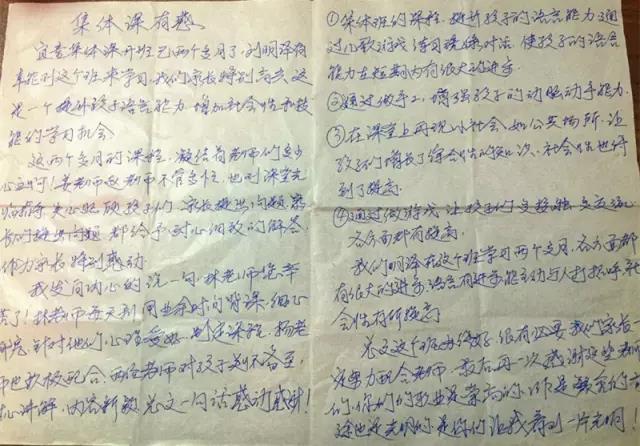 集体课有感
宜
集体课开班已两个多月了,刘明泽有
幸能到这个班来学习,我们家长特别高兴,这
是一个提升孩子语言能力,增加社会性和技
能的学习机会
这两个多月的课程,凝结着老师们多少
心血
老师不管多忙,也到课堂
孩子们,家长提出问题,家
长的提出问题都给予耐心细致的解答,
作为家长特别感动
我发自内心的说一句,林老师您辛
苦了!林老师每天利用业余时间背课,细心
研究,针对他们,心理
制定课程,杨老
师也积极配合,两位老师对孩子关怀备至,
讲解,内容新颖,总之一句话感动感谢!
①集体班的课程,提升孩子的语言能力,通
过儿歌游戏练习现集对话,使孩子的语言
能力在短期内有很大的进步
②通过做手工,增强孩子的动脑动手能力.
③在课堂上再现小社会,如公共场所,让
孩子们增长了综合性的知识,社会性也得
到了提高
④通过做游戏,让孩子们
各方面都有提高,
我们明泽在这个班学习两个多月,各方面都
有很大的进步,语言有进步能主动与人打招呼,社
会性有所提高
总之这个班办得好,很有必要,我们家长一
定努力配合老师,最后再一次感谢这些老师
们,你们的职业是崇高的,
也是光明的是你们让我看到一片光明!